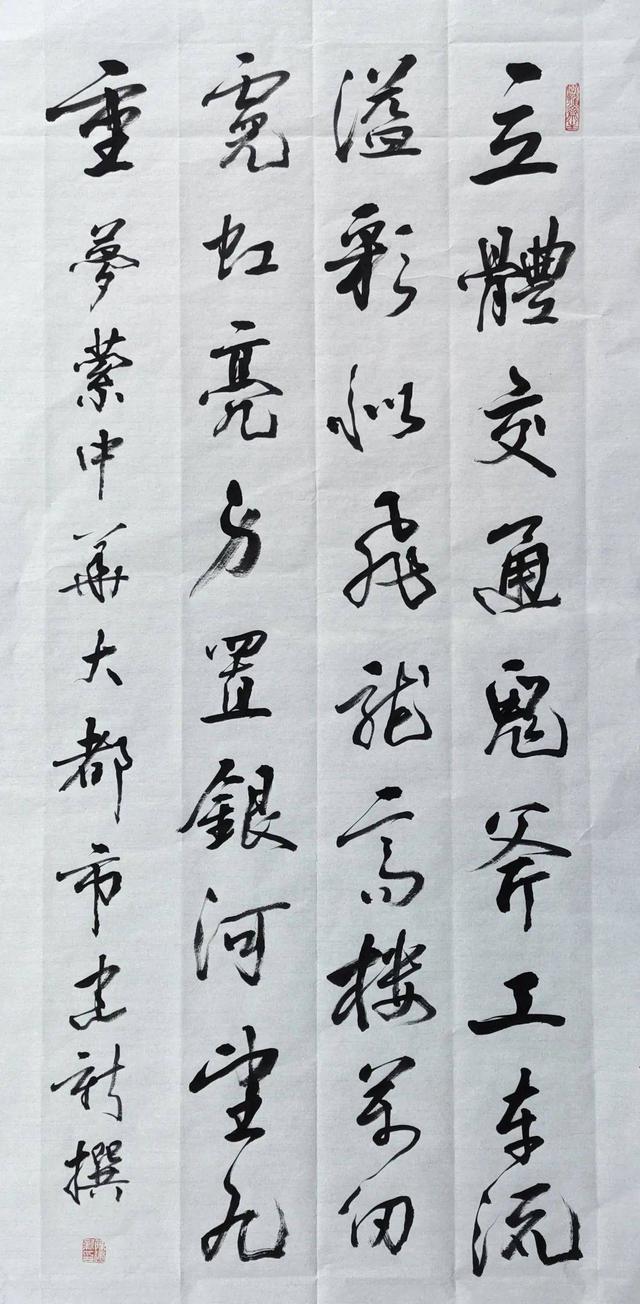 立體交通鬼斧工车流
溢彩似飛龍高樓萬仞
霓虹亮方置銀河望九
重 夢縈中華大都市建新撰